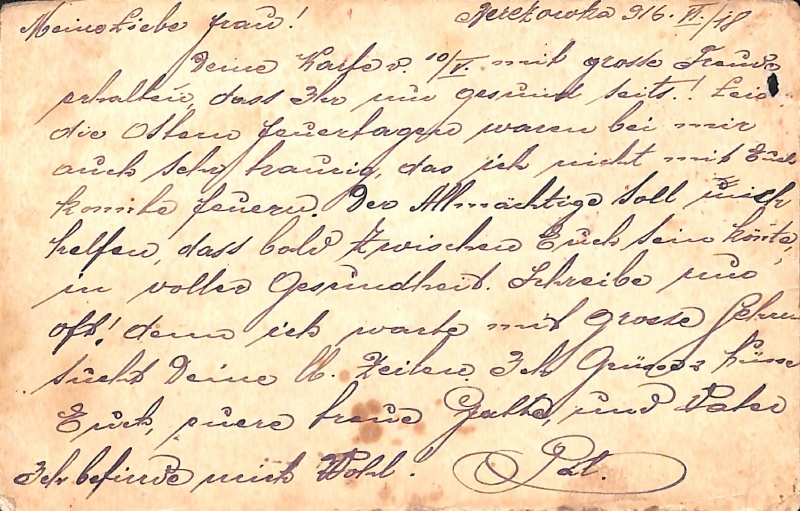 Meine Liebe frau! Berezowka 916. VI./18
Deine Karte v. 10/V. mit grosse Freude
erhalten, dass Ihr nur gesund seits!
die Ostern feuertagen waren bei mir
auch sehr traurig, das ich nicht mit Euch
konnte feuern. Der Allmächtige soll mich
helfen, dass bald zwischen Euch sein könnte,
in voller Gesundheit. Schreibe nur
oft! denn ich warte mit grosse Sehn
sucht Deine lb. Zeilen. Ich Grüsse u Küsse
Euch, euere treue Gatte, und Vater
Ich befinde mich Wohl.